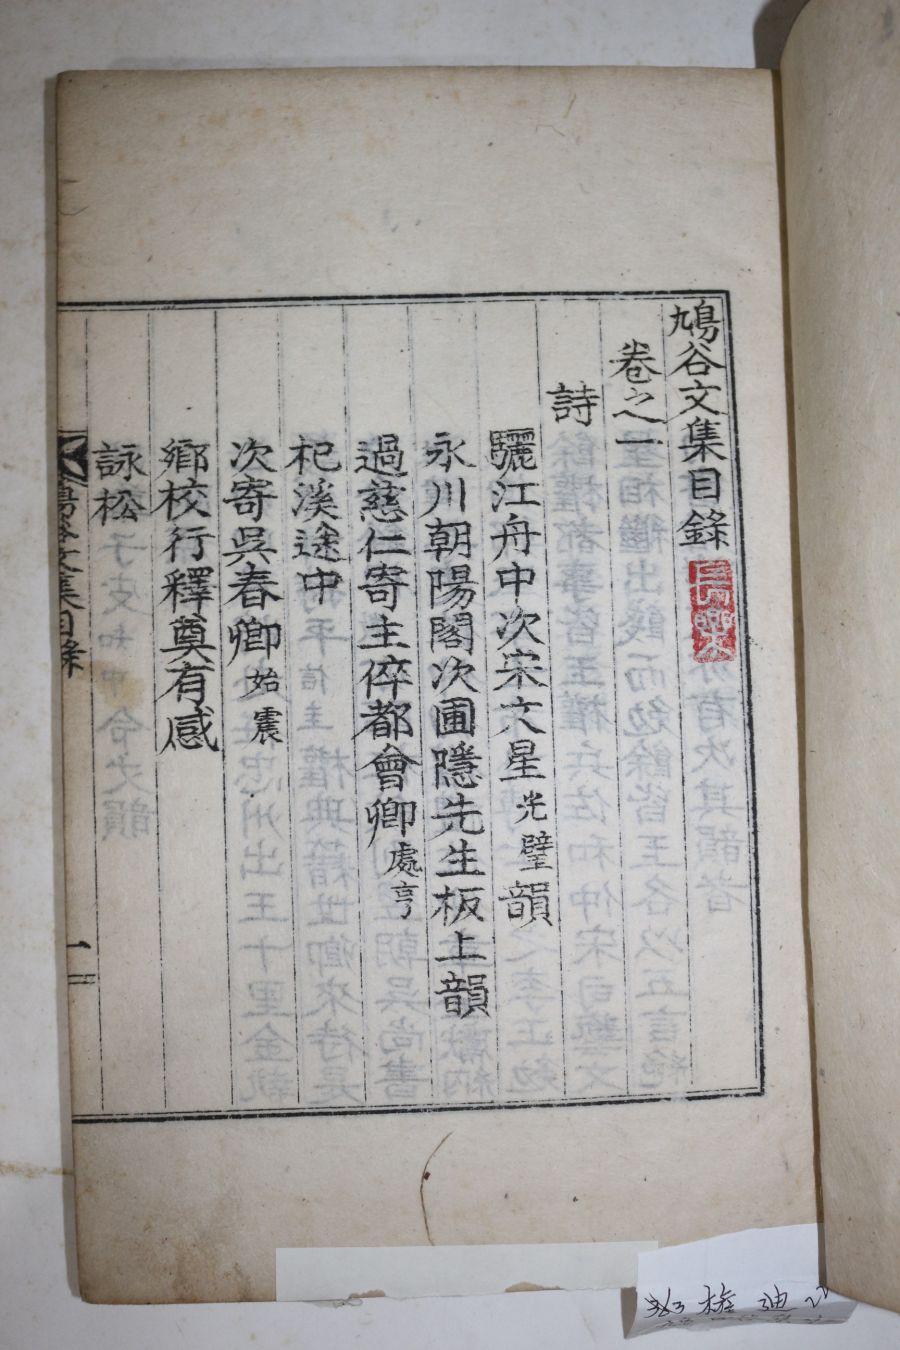 鳩谷文集目錄
卷之一
詩
驪江舟中次宋文星光璧韻
永川朝陽閣次圃隱先生板上韻
過慈仁寄主倅都會卿處亨
杞溪途中
次寄吳春卿始震
鄉校行釋奠有感
詠松
谷文集目錄
一